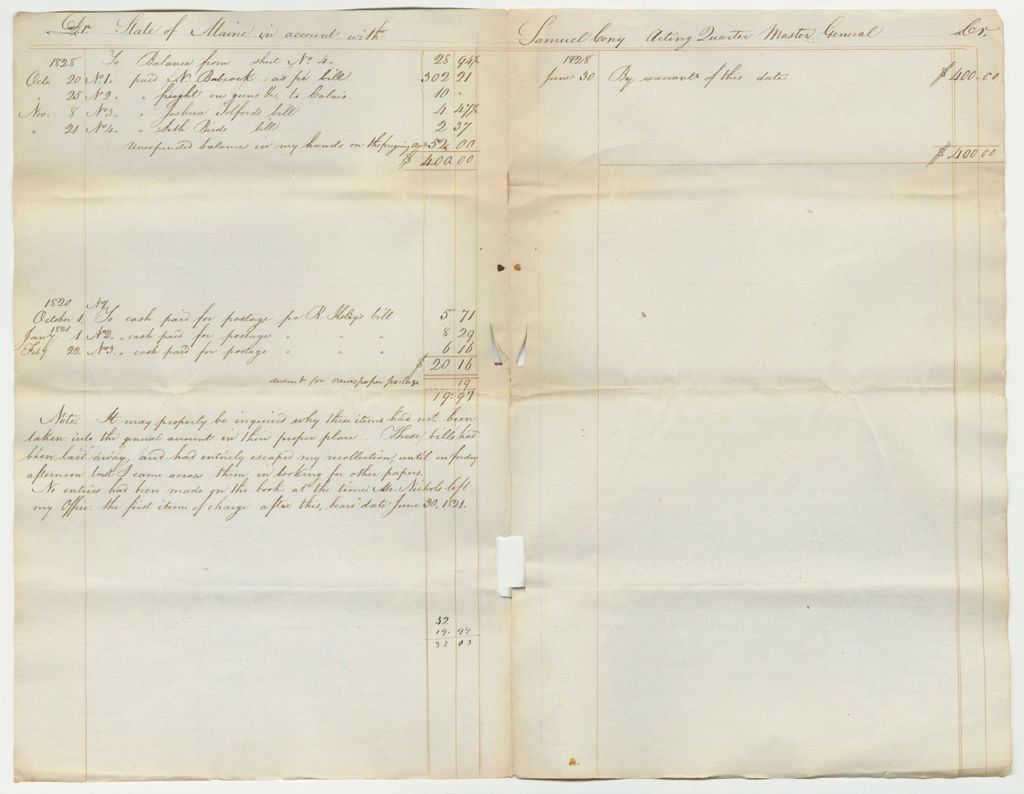 Dr. State of Maine in account with
1828 To Balance from sheet No 4. 28 94½
Octo 20 No 1. paid N. Babcock as pr bill 302 21
" 25 No 2. " freight on guns &c. to Calais 10 -
Nov. 8 No 3. " Joshua Tolfords bill 4 47½
" 21 No 4. " Seth Birds bill 2 37
Unexpended balance in my hands on the forgoing 52 00
$ 400 00
1820 No 1.
October 1, To cash paid for postage pr R. bill 5 71
Jany 1821 1 No 2. " cash paid for postage " " " 8 29
Feby 22. No 3. " cash paid for postage " " " 6 16
$ 20 16
deduct for newspaper postage 19
19.97
Note. It may properly be inquired why these items had not been
taken into the general account in their proper place. These bills had
been laid away, and had entirely escaped my recollection, until on friday
afternoon last I came across them in looking for other papers.
No entries had been made on the book at the time Mr. Nichols left
my Office. the first item of charge after this, bears date June 30, 1821.
52
19. 97
32 03
Samuel Cony Acting Quarter Master General Cr.
1828
June 30 By warrant of this date $ 400.00
$ 400 00